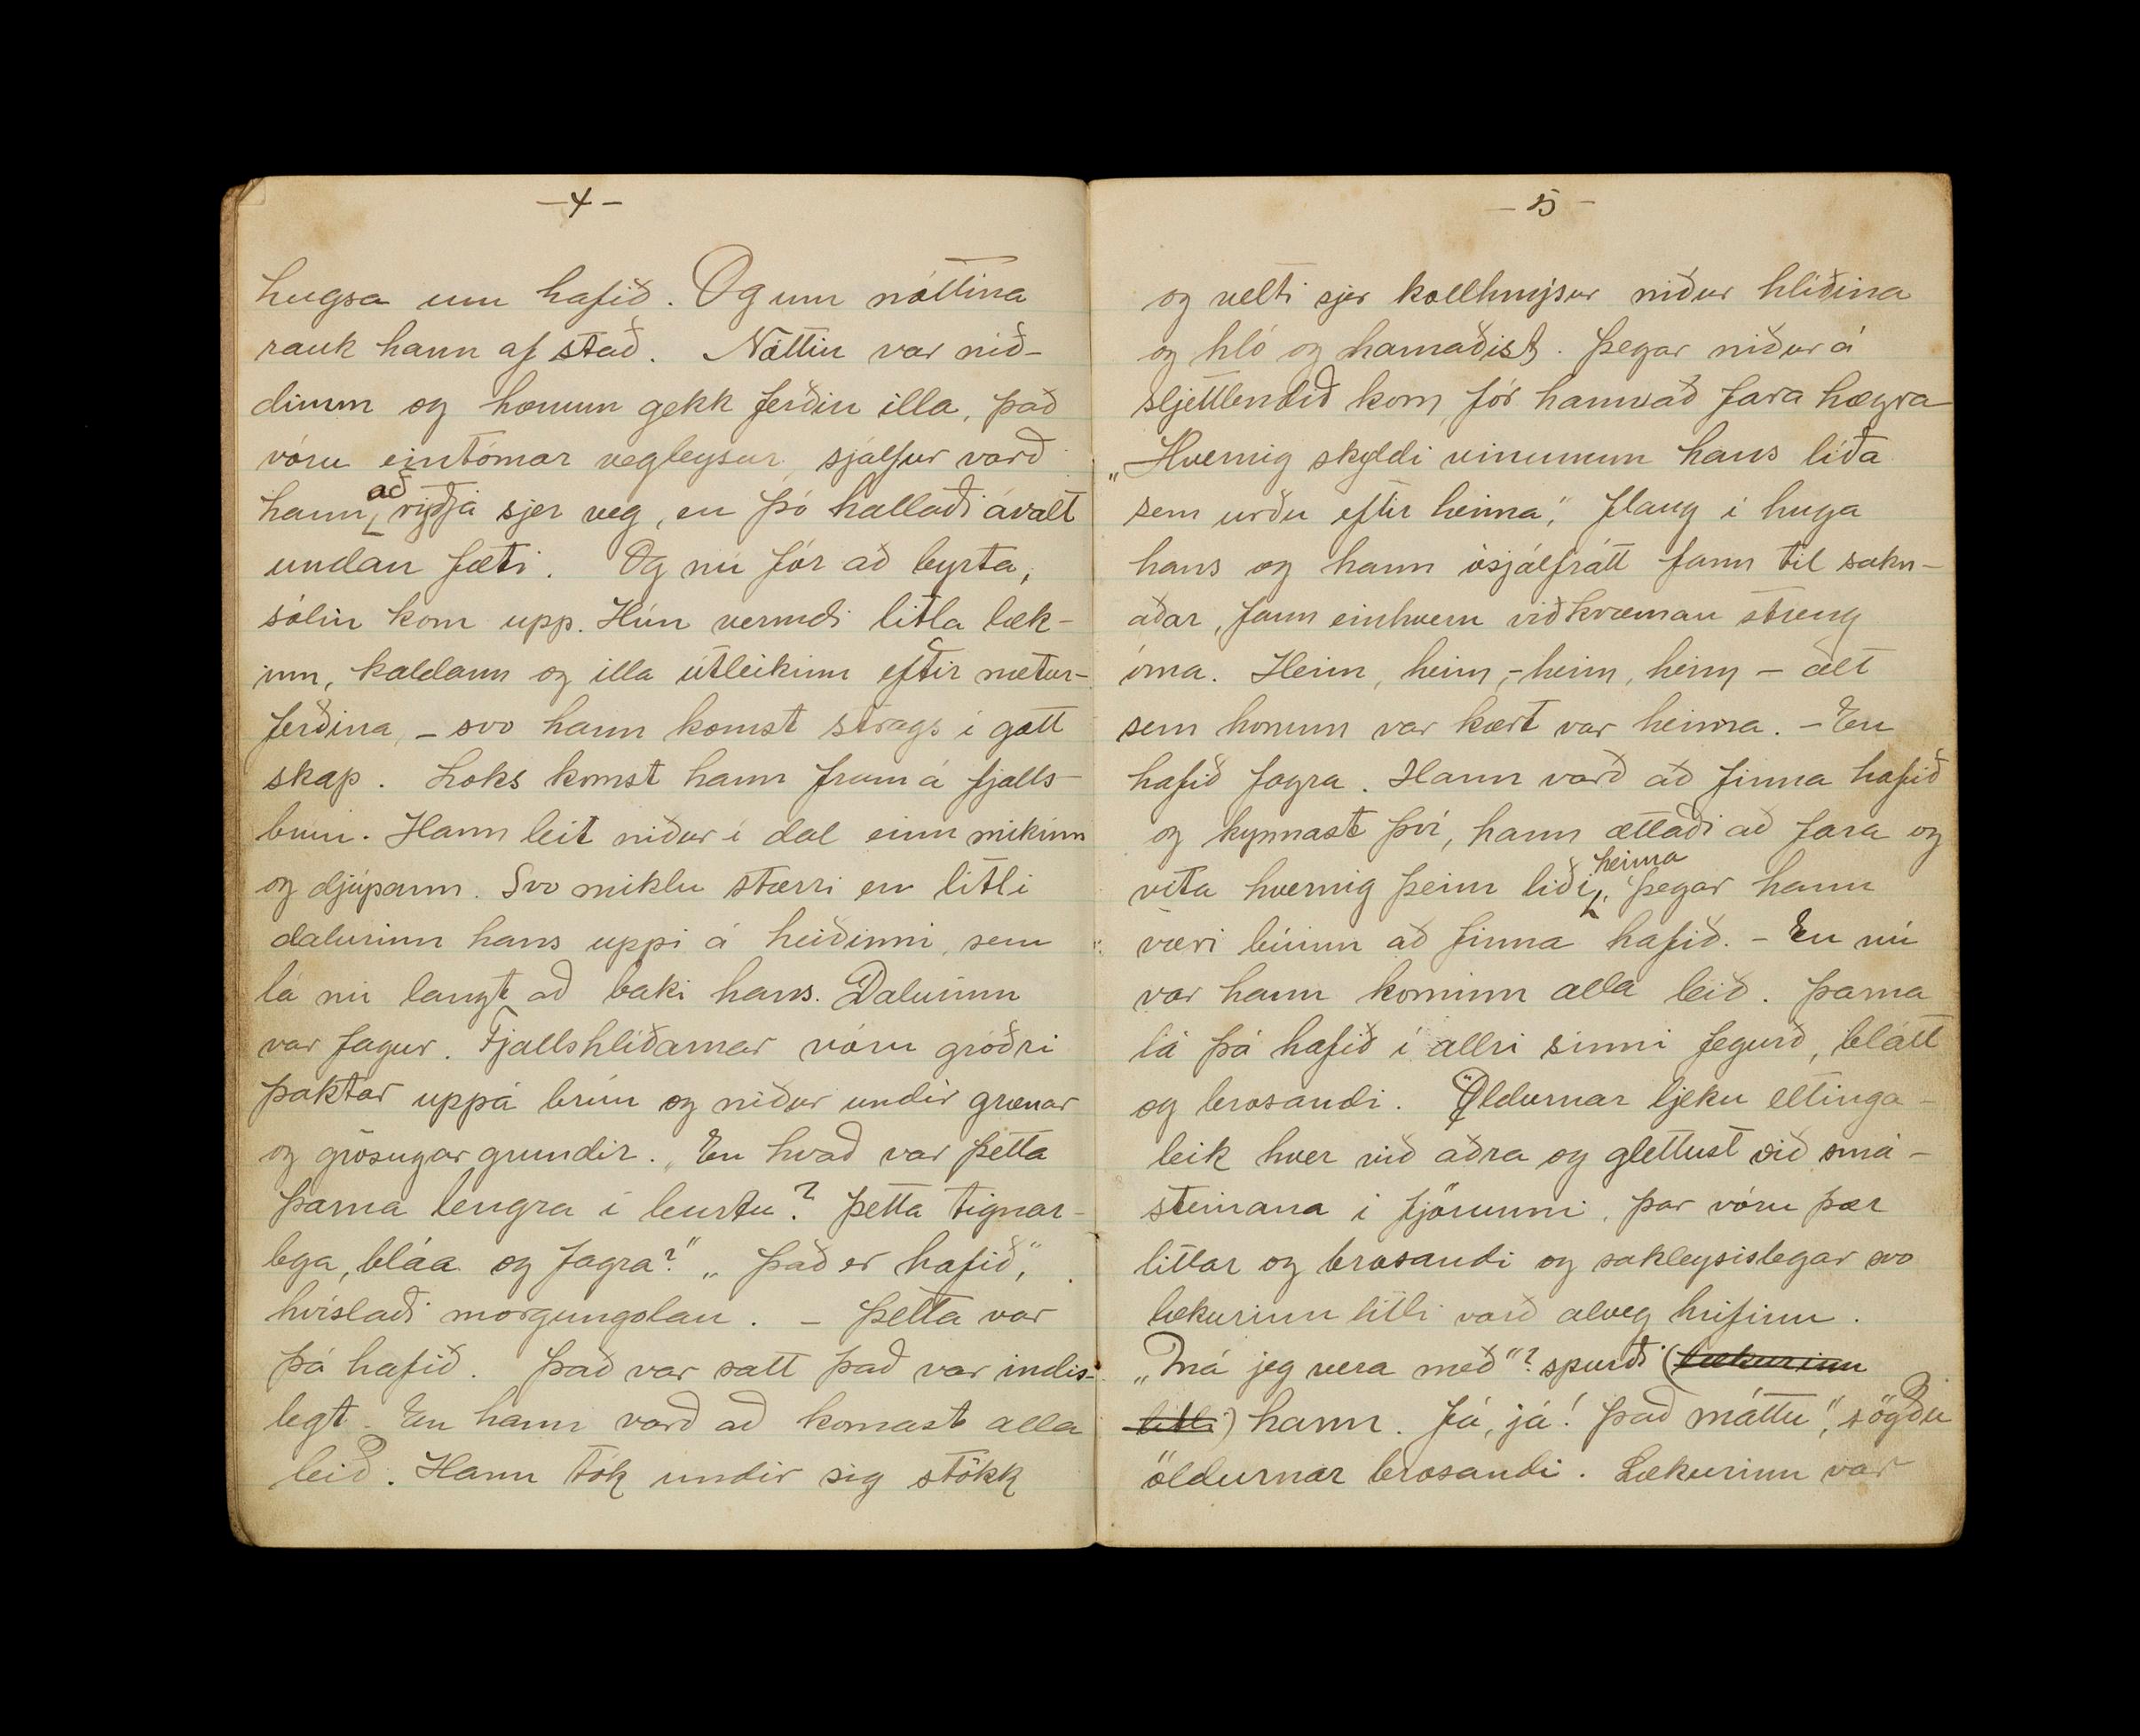 — 4 —
hugsa um hafið. Og um nóttina
rauk hann af stað. Nóttin var nið-
dimm og honum gekk ferðin illa, það
vóru eintómar vegleysur, sjálfur varð
hann að ryðja sjer veg, en þó hallaði ávalt
undan fæti. Og nú fór að byrta,
sólin kom upp. Hún vermdi litla læk-
inn, kaldann og illa útleikinn eftir nætur-
ferðina, – svo hann komst strags í gott
skap. Loks komst hann fram á fjalls-
brún. Hann leit niður í dal einn mikinn
og djúpann. Svo miklu stærri en litli
dalurinn hans uppi á heiðinni, sem
lá nú langt að baki hans. Dalurinn
var fagur. Fjallshlíðarnar vóru gróðri
þaktar uppá brún og niður undir grænar
og grösugar grundir. „En hvað var þetta
þarna lengra í burtu? Þetta tignar-
lega, bláa og fagra?" „Það er hafið,"
hvíslaði morgungolan. – Þetta var
þá hafið. Það var satt það var indis-
legt – En hann varð að komast alla
leið. Hann tók undir sig stökk
— 5 —
og velti sjer kollhnýsur niður hlíðina
og hló og hamaðist. Þegar niður á
sljettlendið kom fór hann að fara hægra
„Hvernig skyldi vinumum hans líða
sem urðu eftir heima", flaug í huga
hans og hann ósjálfrátt fann til sakn-
aðar, fann einhvern viðkvæman streng
óma. Heim, heim, – heim, heim – alt
sem honum var kært var heima. – En
hafið fagra. Hann varð að finna hafið
og kynnast því, hann ættaði að fara og
vita hvernig þeim liði heima, þegar hann
væri búinn að finna hafið. – En nú
var hann kominn alla leið. Þarna
lá þá hafið í allri sinni fegurð, blátt
og brosandi. Öldurnar ljeku eltinga-
leik hver við aðra og glettust við smá-
steinana í fjörunni, þar vóru þær
litlar og brosandi og sakleysislegar svo
lækurinn litli varð alveg hrifinn.
„Má jeg vera með"? spurði (lækurinn
litli) hann. Já, já! það máttu", sögðu
öldurnar brosandi. Lækurinn var